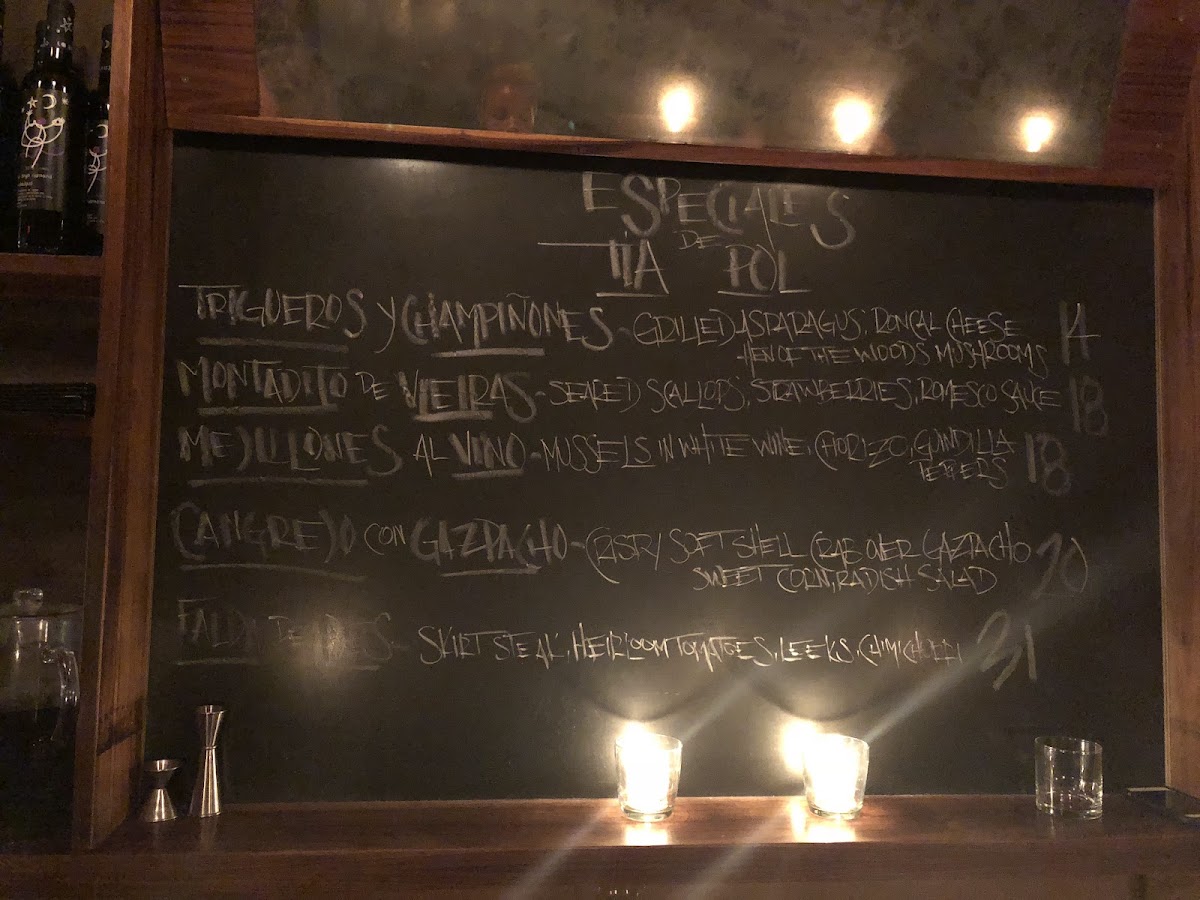 ESPECIALES
DE
TIA POL
TRIGUEROS Y CHAMPIÑONES - GRILLED ASPARAGUS, RONCAL CHEESE 14
HEN OF THE WOODS MUSHROOMS
MONTADITO DE VIEIRAS - SEARED SCALLOPS, STRAWBERRIES, ROMESCO SAUCE 18
MEJILLONES AL VINO - MUSSELS IN WHITE WINE, CHORIZO, GUINDILLA 18
PEPPERS
CANGREJO CON GAZPACHO - CRISPY SOFT SHELL CRAB OVER GAZPACHO 20
SWEET CORN, RADISH SALAD
FALDA DE RES - SKIRT STEAK, HEIRLOOM TOMATOES, LEEKS, CHIMICHURRI 31